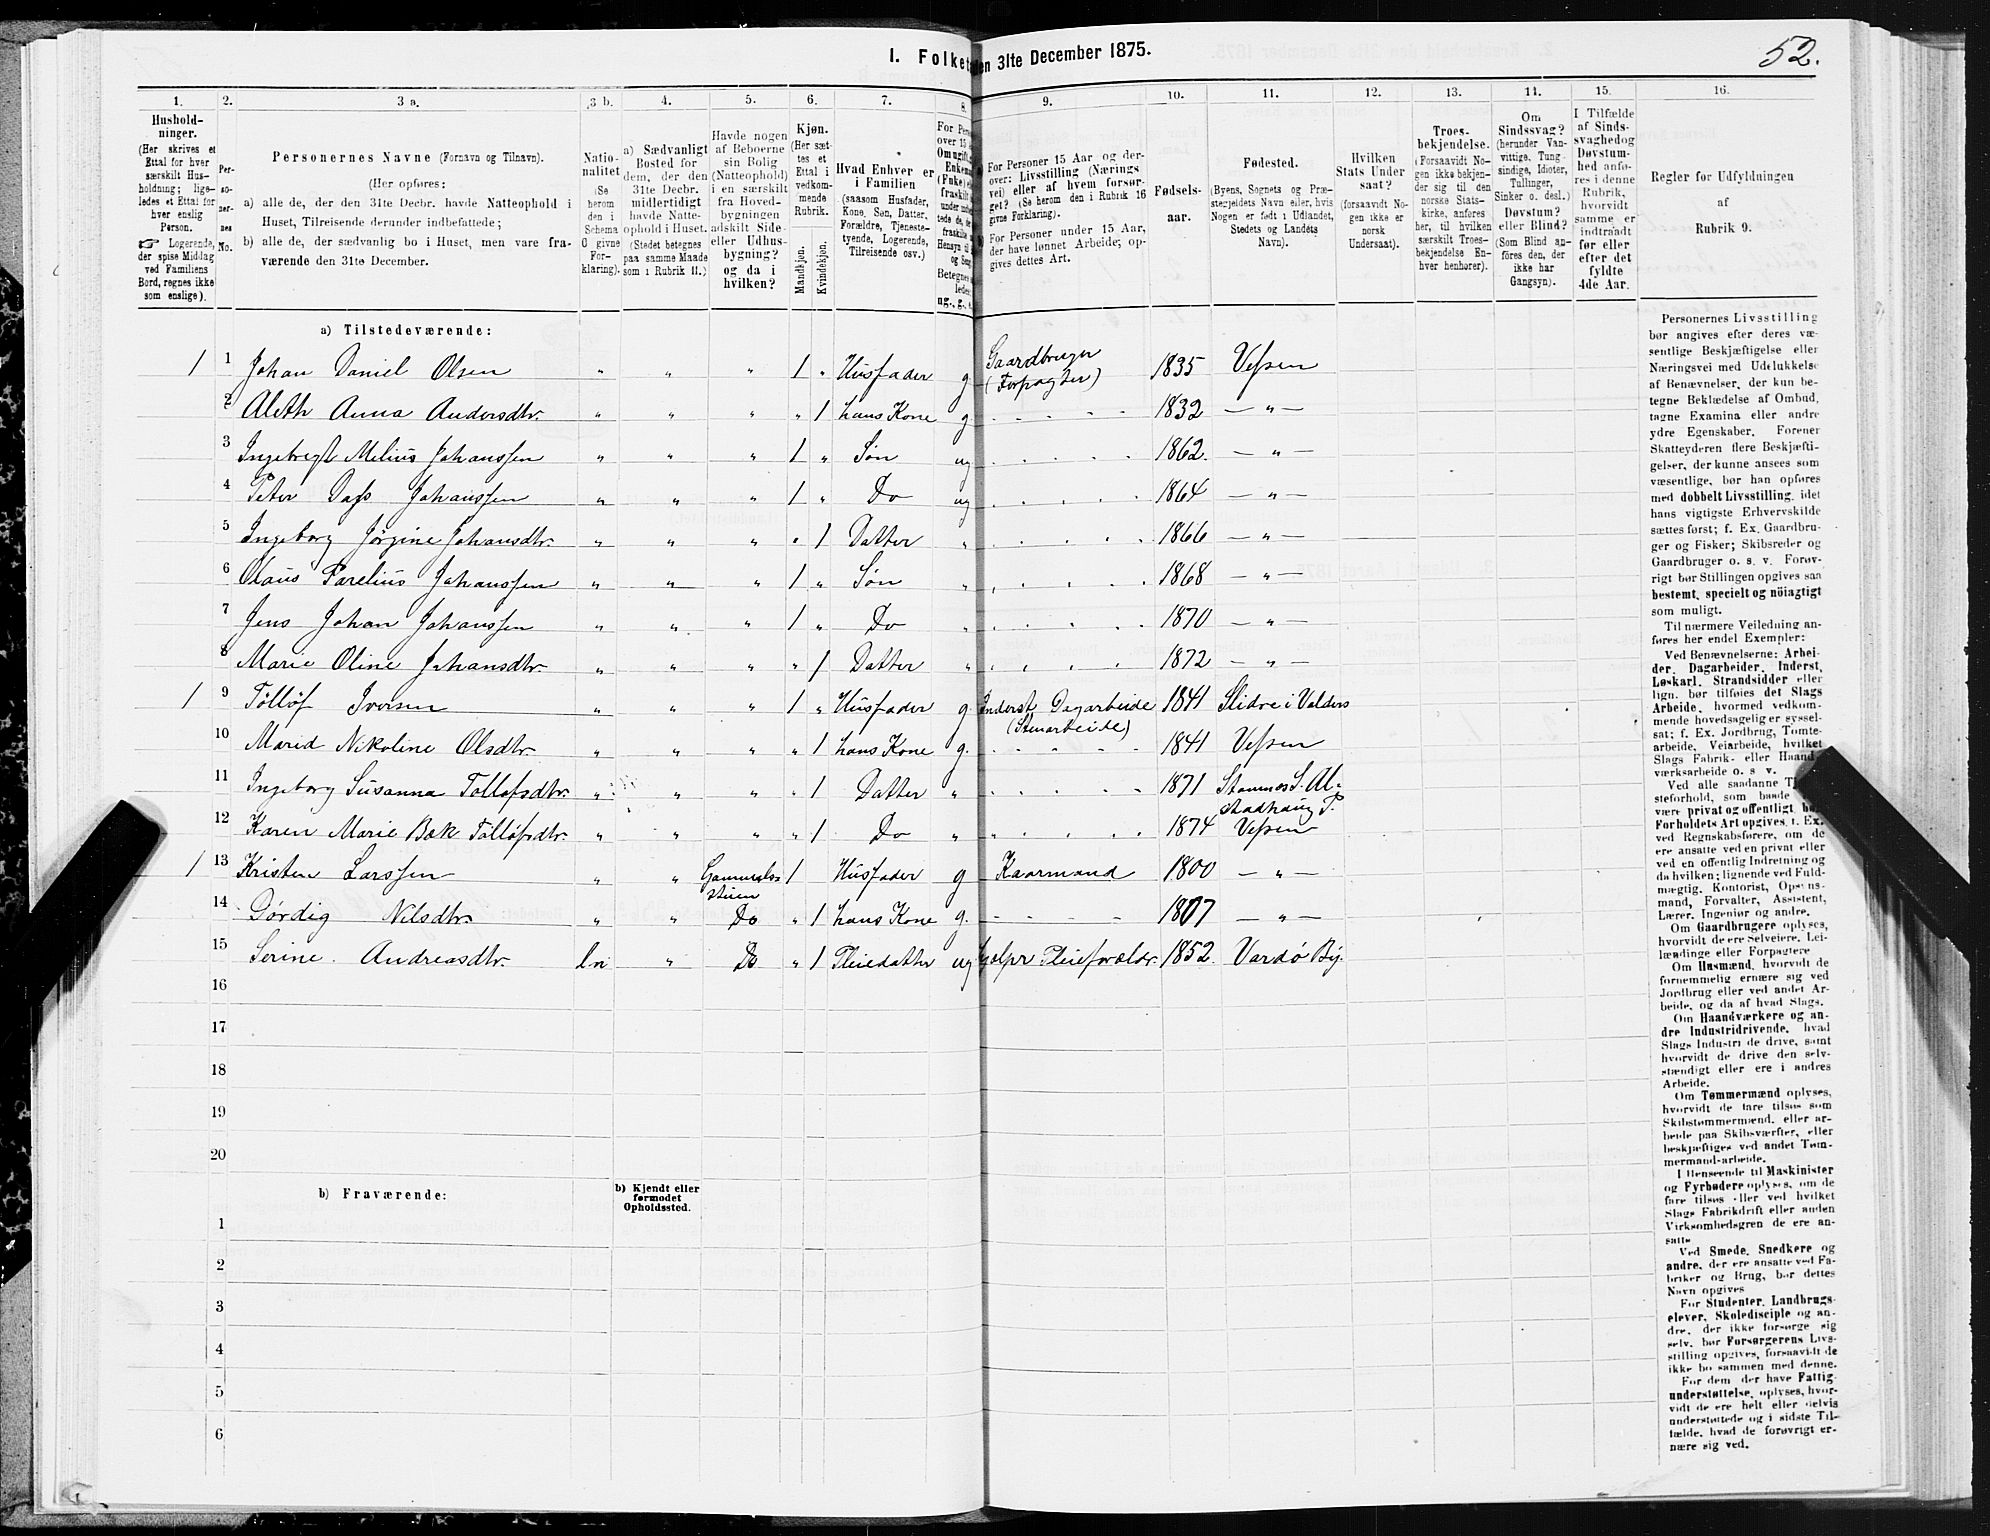 52.
I. Folket en 31te December 1875.
1. 2. 3 a. 3 b. 4. 5. 6. 7. 8. 9. 10. 11. 12. 13. 14. 15. 16.
Hushold-
ninger.
(Her skrives et
Ettal for hver
særskilt Hus-
holdning; lige-
ledes et Ettal for
hver enslig
Person.
☞ Logerende,
der spise Middag
ved Familiens
Bord, regnes ikke
som enslige).
Per-
so-
ner-
nes
No.
Personernes Navne (Fornavn og Tilnavn).
(Her opføres:
a) alle de, der den 31te Decbr. havde Natteophold i
Huset, Tilreisende derunder indbefattede;
b) alle de, der sædvanlig bo i Huset, men vare fra-
værende den 31te December.
Natio-
nalitet
(Se
herom
den i
Schema
O givne
For-
klaring).
a) Sædvanligt
Bosted for
dem, der den
31te Decbr.
midlertidigt
havde Natte-
ophold i Huset.
(Stedet betegnes
paa samme Maade
som i Rubrik 11.)
Havde nogen
af Beboerne
sin Bolig
(Natteophold)
i en særskilt
fra Hoved-
bygningen
adskilt Side-
eller Udhus-
bygning?
og da i
hvilken?
Kjøn.
(Her sæt-
tes et
Ettal i
vedkom-
mende
Rubrik.
Mandkjøn.
Kvindekjøn.
Hvad Enhver er
i Familien
(saasom Husfader,
Kone, Søn, Datter,
Forældre, Tjeneste-
tyende, Logerende,
Tilreisende osv.)
For Pers
over 15 A
Om ugift,
Enkema
(Fnke) e
fraskilt
ng., g., e.
For Personer 15 Aar og der-
over: Livsstilling (Nærings
vei) eller af hvem forsør-
get? (Se herom den i Rubrik 16
givne Forklaring).
For Personer under 15 Aar,
der have lønnet Arbeide; op-
gives dettes Art.
Fødsels-
aar.
Fødested.
(Byens, Sognets og Præ-
stegjeldets Navn eller, hvis
Nogen er født i Udlandet,
Stedets og Landets
Navn).
Hvilken
Stats Under
saat?
(forsaavidt No-
gen ikke er
norsk
Undersaat).
Troes-
bekjendelse.
(Forsaavidt No-
gen ikke bekjen-
der sig til den
norske Stats-
kirke, anføres
her, til hvilken
særskilt Troes-
bekjendelse En-
hver henhører).
Om
Sindssvag?
(herunder Van-
vittige, Tung-
sindige, Idioter,
Tullinger,
Sinker o. desl.)
Døvstum?
eller Blind?
(Som Blind an-
føres den, der
ikke har
Gangsyn).
I Tilfælde
af Sinds-
svaghedog
Døvstum-
hed anfø-
res i denne
Rubrik,
hvorvidt
samme er
indtraadt
før eller
efter det
fyldte
4de Aar.
Regler for Udfyldningen
af
Rubrik 9.
a) Tilstedeværende:
1 1 Johan Daniel Olsen " " " 1 " Husfader g Gaardbruger (Forpagter) 1835 Vefsen
2 Aleth Anna Andersdtr. " " " " 1 hans Kone g 1832 — " —
3 Ingebregt Melius Johanssen " " " 1 " Søn ug 1862. — " —
4 Peter Dass Johanssen " " " 1 " Do ug 1864 — " —
5 Ingeborg Jørgine Johansdtr. " " " " 1 Datter " 1866 — " —
6 Olaus Parelius Johanssen " " " 1 " Søn " 1868 — " —
7 Jens Johan Johanssen " " " 1 " Do " 1870 — " —
8 Marie Oline Johansdtr. " " " " 1 Datter " 1872 — " —
1 9 Tølløf Iversen " " " 1 " Husfader g. Inderst Dagarbeide (Stenarbeide) 1841 Slidre i Valders
10 Marid Nikoline Olsdtr. " " " " 1 hans Kone g. 1841 Vefsen
11 Ingeborg Susanna Tollofsdtr. " " " " 1 Datter " 1871 Stamnes S. Al-
stadhaug P.
12 Karen Marie Bæk Tølløfsdtr. " " " " 1 Do " 1874 Vefsen
1 13 Kristen Larssen " " Gammels-
stuen 1 Husfader g Kaarmand 1800 — " —
14 Dórdig Nilsdtr. " " Do " 1 hans Kone g. 1807 — " —
15 Serine Andreasdtr. ln " Do " 1 Pleiedatter ug hjælpr Pleieforældr. 1852. Vardø By.
16
17
18
19
20
b) Fraværende:
b) Kjendt eller
formodet
Opholdssted.
1
2
3
4
5
6
Personernes Livsstilling
bør angives efter deres væ-
sentlige Beskjæftigelse eller
Næringsvei med Udelukkelse
af Benævnelser, der kun be-
tegne Beklædelse af Ombud,
tagne Examina eller andre
ydre Egenskaber. Forener
Skatteyderen flere Beskjæfti-
gelser, der kunne ansees som
væsentlige, bør han opføres
med dobbelt Livsstilling, idet
hans vigtigste Erhvervskilde
sættes først; f. Ex. Gaardbru-
ger og Fisker; Skibsreder og
Gaardbruger o. s. v. Forøv-
rigt bør Stillingen opgives saa
bestemt, specielt og nöiagtigt
som muligt.
Til nærmere Veiledning an-
føres her endel Exempler:
Ved Benævnelserne: Arbei-
der, Dagarbeider, Inderst,
Løskarl, Strandsidder eller
lign. bør tilføies det Slags
Arbeide, hvormed vedkom-
mende hovedsagelig er syssel-
sat; f. Ex. Jordbrug, Tomte-
arbeide, Veiarbeide, hvilket
Slags Fabrik- eller Haand-
værksarbeide o. s. v.
Ved alle saadanne
steforhold, som baade
være privat og offentlig, bør
Forholdets Art opgives, t. Ex.
ved Regnskabsførere, om de
ere ansatte ved en privat eller
ved en offentlig Indretning og
da hvilken; lignende ved Fuld-
mægtig, Kontorist, Opsyns-
mand, Forvalter, Assistent,
Lærer, Ingeniør og andre.
Om Gaardbrugere oplyses,
hvorvidt de ere Selveiere, Lei-
lændinge eller Forpagtere
Om Husmænd, hvorvidt de
fornemmelig ernære sig ved
Jordbrug eller ved andet Ar-
beide, og da af hvad Slags.
Om Haandværkere og an-
dre Industridrivende, hvad
Slags Industri de drive, samt
hvorvidt de drive den selv-
stændigt eller ere i andres
Arbeide.
Om Tømmermænd oplyses,
hvorvidt de fare tilsøs som
Skibstømmermænd, eller ar-
beide paa Skibsværfter, eller
beskjæftiges ved andet Tøm-
mermand-arbeide.
I Henseende til Maskinister
og Fyrbødere oplyses, om de
fare tilsøs eller ved hvilket
Slags Fabrikdrift eller anden
Virksomhedsgren de ere an-
satte
Ved Smede, Snedkere og
andre, der ere ansatte ved Fa-
briker og Brug, bør dettes
Navn opgives
For Studenter, Landbrugs-
elever, Skoledisciple og an-
dre, der ikke forsørge sig
selv, bør Forsørgerens Livs-
stilling opgives, forsaavidt de
ikke bo sammen med denne.
For dem, der have Fattig-
understøttelse, oplyses, hvor-
vidt de ere helt eller delvis
understøttede og i sidste Til-
fælde, hvad de forøvrigt er-
nære sig ved.